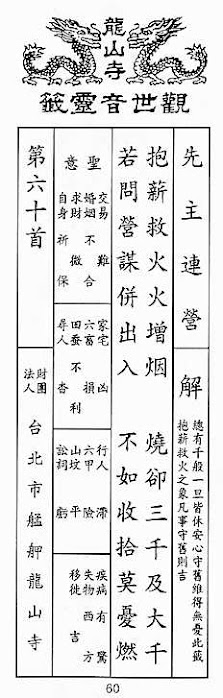 龍山寺
觀世音靈籤
先主連營
解
總有千般一旦皆休安心守舊維得無憂此籤
抱薪救火之象凡事守舊則吉
抱薪救火火增烟 燒卻三千及大千
若問營謀併出入 不如收拾莫憂燃
聖意
交易 難
婚姻 不合
求財 微
自身 祈保
家宅 凶
六畜 損
田蚕 不利
尋人 杳
行人 滯
六甲 險
山坟 平
訟詞 虧
疾病 有驚
失物 西方
移徙 吉
第六十首
財團法人
台北市艋舺龍山寺
60